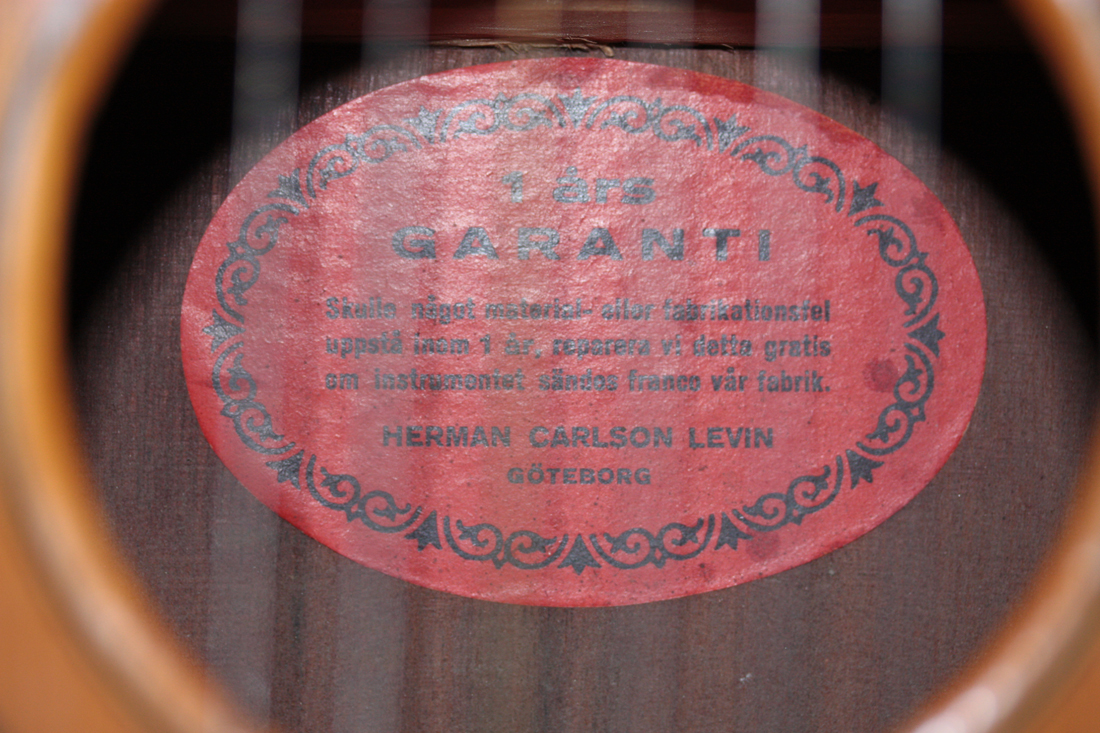 1 års
GARANTI
Skulle något material- eller fabrikationsfel
uppstå inom 1 år, reparera vi detta gratis
om instrumentet sändes franco vår fabrik.
HERMAN CARLSON LEVIN
GÖTEBORG